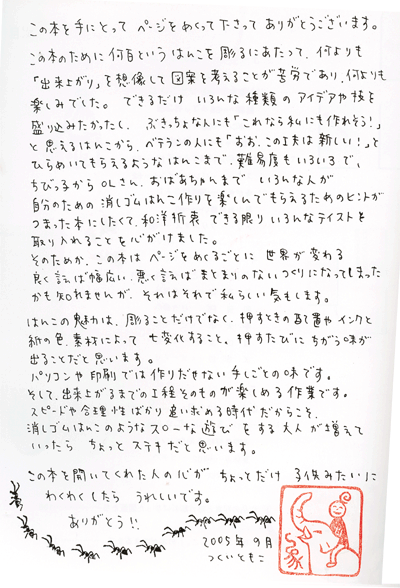 この本を手にとって ページをめくって下さって ありがとうございます。
この本のために 何百という はんこを 彫るにあたって、何よりも
「出来上がり」を想像して 図案を考えることが 苦労であり、何よりも
楽しみでした。 できるだけ いろんな 種類の アイデアや技を
盛り込みたかったし、 ぶきっちょな人にも「これなら私にも作れそう!」
と 思えるはんこから、ベテランの人にも「おお、この工夫は新しい!」と
ひらめいてもらえるような はんこまで、難易度も いろいろ で、
ちびっこから OLさん、おばあちゃん まで いろんな人が
自分のための 消しゴムはんこ作り を 楽しんでもらえるための ヒントが
つまった本にしたくて、和洋折衷 できる限り いろんなテイストを
取り入れることを 心がけました。
そのためか、この本は ページをめくるごとに 世界が 変わる
良く言えば幅広い、悪く言えば まとまりのないつくりになってしまった
かも知れませんが、それはそれで 私らしい 気もします。
はんこの魅力は、彫ることだけでなく、押すときの配置や インクと
紙の色、素材によって 七変化すること、押すたびに ちがう味が
出ることだと思います。
パソコンや 印刷では作りだせない 手しごとの味です。
そして、出来上がるまでの工程そのものが 楽しめる 作業です。
スピードや 合理性ばかり 追い求める 時代 だからこそ、
消しゴムはんこのような スローな 遊び を する 大人が増えて
いったら ちょっと ステキだと 思います。
この本を 開いてくれた人の心が ちょっとだけ 子供みたいに
わくわくしたら うれしいです。
ありがとう!!
2005年 9月
つくいともこ
象